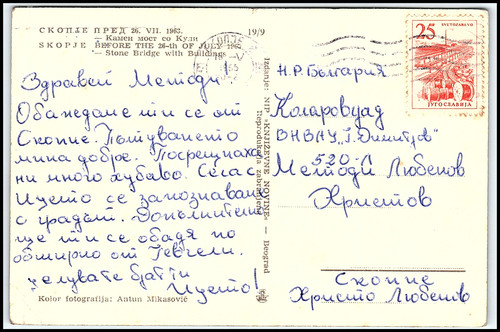 СКОПЈЕ ПРЕД 26. VII. 1963.
— Камен мост со Кули
SKOPJE BEFORE THE 26-th OF JULY 1963
— Stone Bridge with Buildings
19/9
Здравей Методи
Обаждаме ти се от
Скопие. Пътуването
мина добре. Посрещнаха
ни много хубаво. Сега с
Ицето се запознаваме
с градът. Допълнително
ще ти се обадя по
обширно от Гевгели.
целувате братти
Ицето!
Kolor fotografija: Antun Mikasović
Izdanje: NIP „KNJIŽEVNE NOVINE“ — Beograd
Reprodukcija zabranjena
25
ЈУГОСЛАВИЈА
Н.Р. България
Коларовград
ВНВАУ „Г. Димитров"
520-Л
Методи Любенов
Христов
Скопие
Христо Любенов